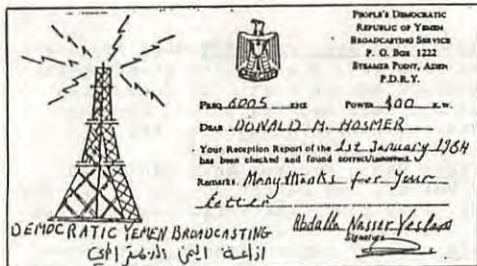 PEOPLE'S DEMOCRATIC
REPUBLIC OF YEMEN
BROADCASTING SERVICE
P. O. BOX 1222
STEAMER POINT, ADEN
P.D.R.Y.
FREQ. 6005 KHZ POWER 100 K.W.
DEAR DONALD M. HOSMER
Your Reception Report of the 1st January 1984
has been checked and found correct/incorrect.
Remarks Many thanks for Your
Letter
Abdulla Nasser
Signature
DEMOCRATIC YEMEN BROADCASTING
اذاعة اليمن الديمقراطي